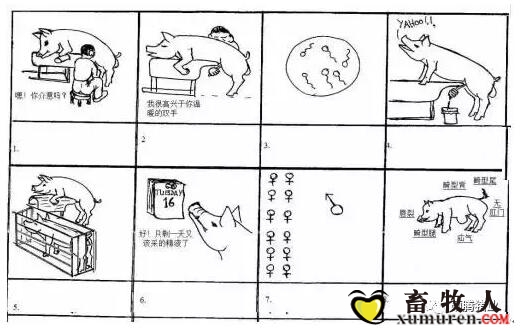 YAHOO!!
嘿！你介意吗？
我很高兴于你温
暖的双手
1.
2
3.
4.
TUESDAY
16
好！只剩一天又
该采的精液了
畸型尾
唇裂
无
肛门
畸型腿
疝气
5.
6.
7.
畜牧人
xumuren.com